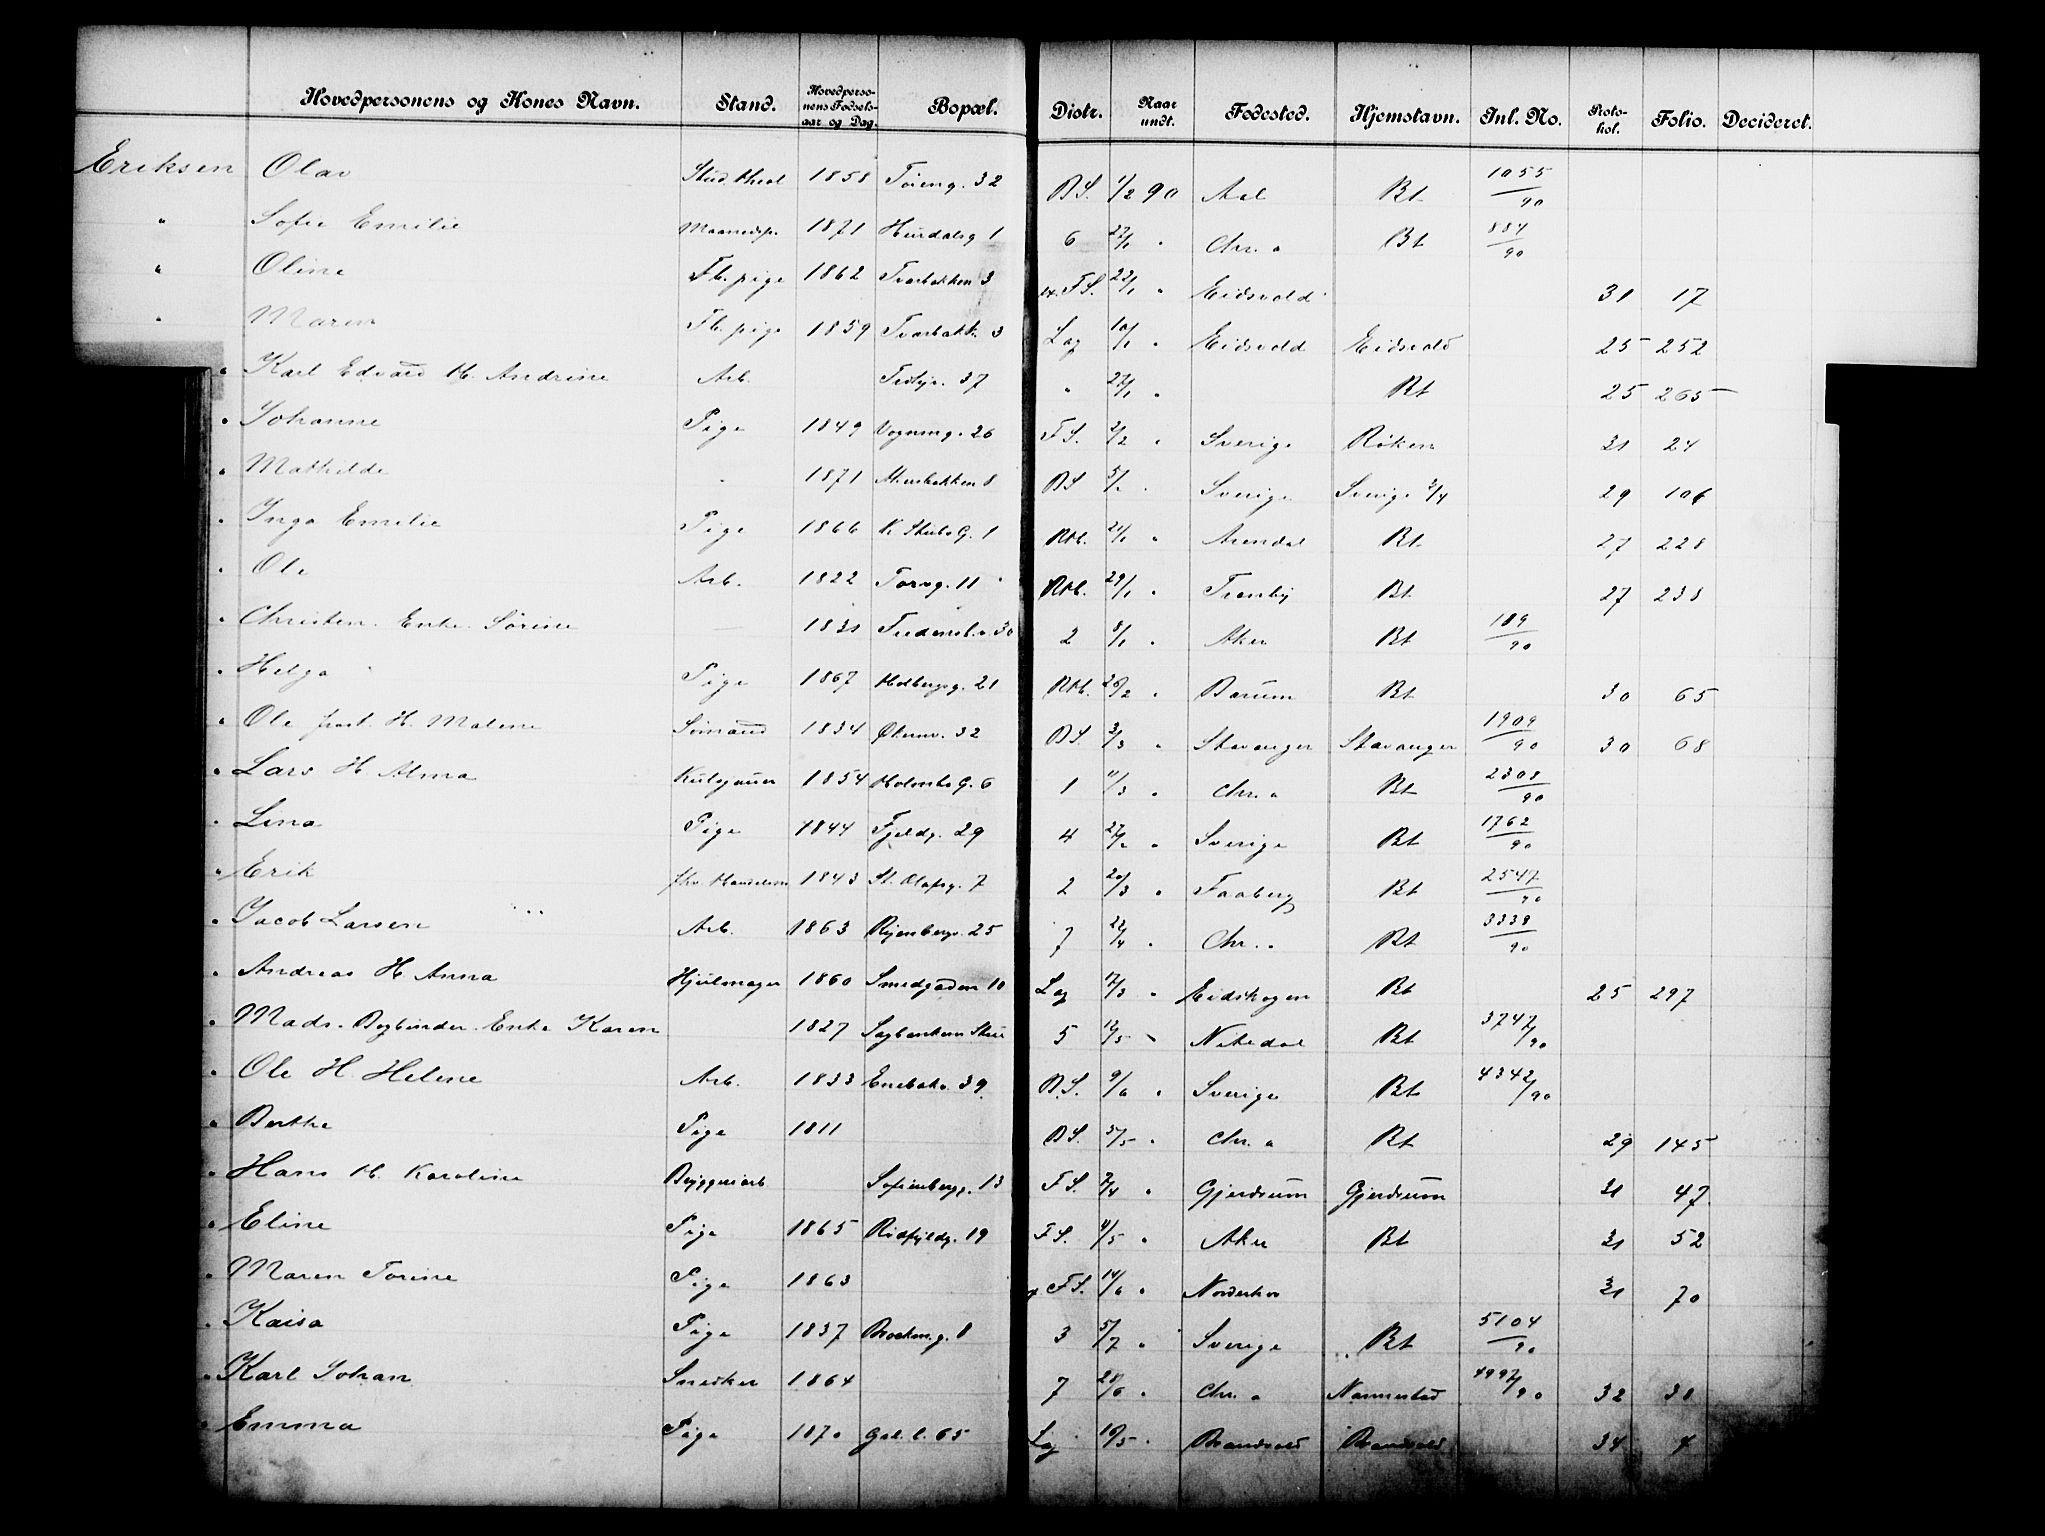 Hovedpersonens og Kones Navn. Stand. Hovedpersonens Fødselsaar og Dag. Bopæl. Distr. Naar undt. Fødested. Hjemstavn. Inl. No. Protokol. Folio. Decideret.
Eriksen Olav Stud. theol 1858 Tøieng. 32 B.S. 1/2 90 Aal Bt 1055/90
" Sofie Emilie 1871 Hurdalsg 1 6 22/1 " Chr.a Bt 884/90
" Oline Fb. pige 1862 Tværbakken 3 F.S. 23/1 " Eidsvold 31 17
" Maren Fb. pige 1859 Tværbakk. 3 Lag 10/1 " Eidsvold Eidsvold 25 252
" Karl Edvard H. Andrine Arb. 37 " 27/1 " Bt 25 265
" Johanne Pige 1849 Vognmg. 26 F.S. 2/2 " Sverige Røken 31 24
" Mathilde " 1871 Akersbakken 8 B.S 5/2 " Sverige Sverige 2/4 29 106
" Inga Emilie Pige 1866 K. Stubs G. 1 Rtb. 21/1 " Arendal Bt 27 228
" Ole Arb. 1822 Torvg. 11 Rtb. 29/1 " Tranby Bt 27 238
" Christen. Enke. Sørine — 1831 30 2 8/1 " Aker Bt 189/90
" Helga Pige 1867 Holbergsg. 21 Rtb. 26/2 " Bærum Bt 30 65
" Ole frast. H. Malene Sømand 1834 Økernv. 32 B.S. 3/3 " Stavanger Stavanger 1909/90 30 68
" Lars H. Alma 1854 Holmbo G. 6 1 11/3 " Chr.a Bt 2308/90
" Lina Pige 1844 Fjeldg. 29 4 27/2 " Sverige Bt 1762/90
" Erik fhv. Handelsm 1843 St. Olafsg. 7 2 20/3 " Faaberg Bt 2547/90
" Jacob Larsen Arb. 1863 Ryenbergv. 25 7 22/4 " Chr.a Bt 3339/90
" Andreas H. Anna Hjulmager 1860 Smedgaden 10 Lag 17/3 " Eidskogen Bt 25 297
" Mads. Bogbinder. Enke Karen 1827 Sagbankens Stue 5 12/5 " Nitedal Bt 3747/90
" Ole H. Helene Arb. 1833 Enebakv. 39 B.S. 9/6 " Sverige Bt 4342/90
" Berthe Pige 1811 B.S. 5/5 " Chr.a Bt 29 145
" Hans H. Karoline Bryggeriarb Sofienbergg. 13 F.S. 2/4 " Gjerdrum Gjerdrum 31 47
" Eline Pige 1865 Rødfyldg. 19 F.S. 4/5 " Aker Bt 31 52
" Maren Torine Pige 1863 F.S. 14/6 " Norderhov 31 70
" Kaisa Pige 1837 Brochm.g. 8 3 5/7 " Sverige Bt 5104/90
" Karl Johan Snedker 1864 7 28/6 " Chr.a Nannestad 4997/90 32 38
" Emma Pige 1870 Grl. l. 65 Lag 10/5 " Brandvold Brandvold 34 4